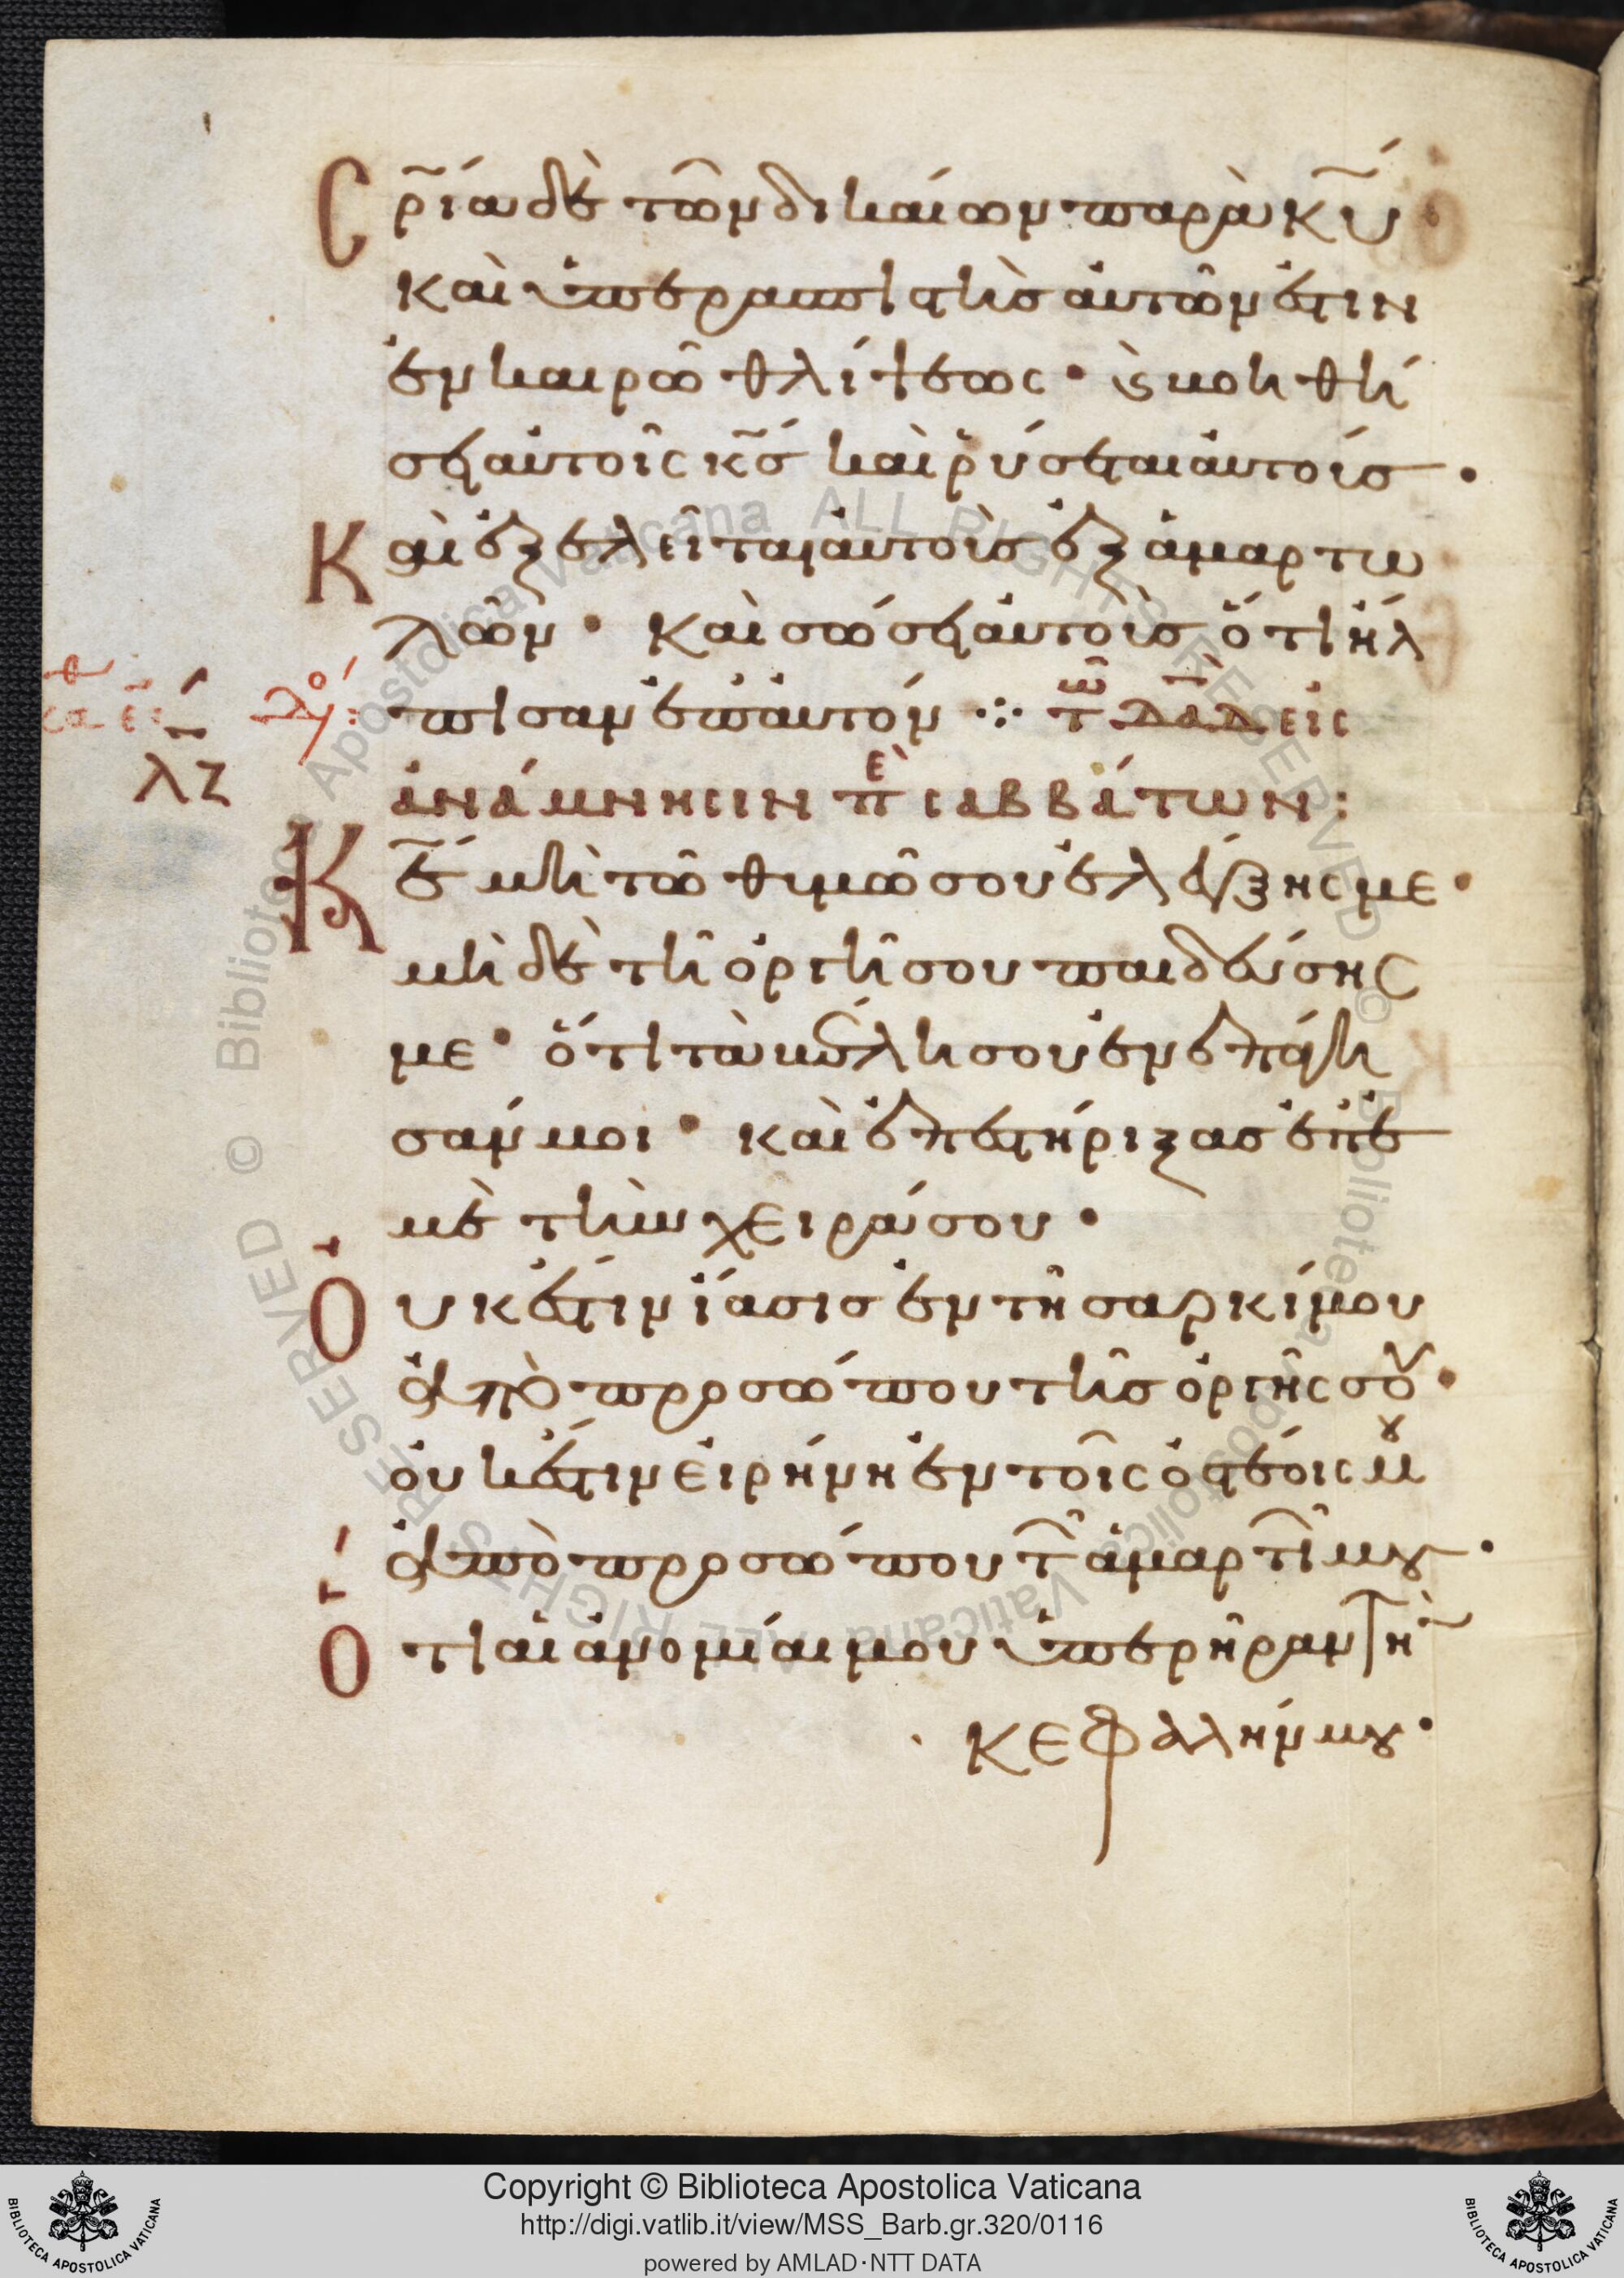 Σ ρ̅ία δὲ τῶν δικαίων παρὰ κ̅υ̅ ·
καὶ ὑπερασπιστὴς αὐτῶν ἐστιν
ἐν καιρῶ θλίψεως · ϗ βοηθή
σει αὐτοῖς κ̅ς̅ καὶ ῥύσεται αὐτούς ·
Καὶ ἐξελεῖται αὐτοὺς ἐξ ἁμαρτω
λῶν · καὶ σώσει αὐτοὺς ὅτι ἤλ
πισαν ἐπ' αὐτόν ⁘ τω δα̅δ̅ εἰς
λζ
ἀνάμνησιν πε σαββάτων :
Κ̅ε̅ μὴ τῶ θυμῶ σου ἐλέγξης με ·
μὴ δὲ τῆ ὀργῆ σου παιδεύσης
με · ὅτι τὰ βέλη σου ἐνεπάγη
σάν μοι · καὶ ἐπεστήριξας ἐπ' ἐ
μὲ τὴν χεῖρά σου ·
Οὐκ ἔστιν ἴασις ἐν τῆ σαρκί μου
ἀπὸ προσώπου τῆς ὀργῆς σου ·
οὐκ ἔστιν εἰρήνη ἐν τοῖς ὀστέοις μου
ἀπὸ προσώπου τ ἁμαρτι μου ·
Ὅτι αἱ ἀνομίαι μου ὑπερῆραν τὴ
κεφαλήν μου ·
Copyright © Biblioteca Apostolica Vaticana
http://digi.vatlib.it/view/MSS_Barb.gr.320/0116
powered by AMLAD·NTT DATA
BIBLIOTECA APOSTOLICA VATICANA
BIBLIOTECA APOSTOLICA VATICANA
© Biblioteca Apostolica Vaticana ALL RIGHTS RESERVED © Biblioteca Apostolica Vaticana ALL RIGHTS RESERVED